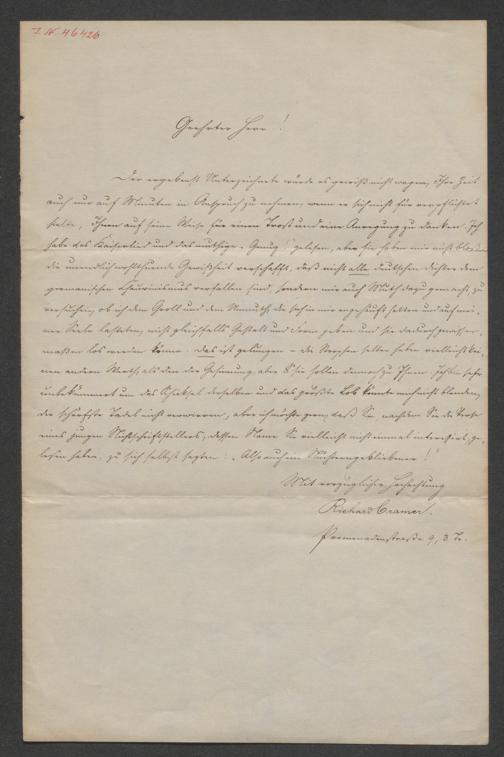 I. N. 46426
Geehrter Herr!
Der ergebenst Unterzeichnete würde es gewiß nicht wagen, Ihre Zeit
auch nur auf Minuten in Anspruch zu nehmen, wenn er sich nicht für verpflichtet
hielte, Ihnen auf seine Weise für einen Trost und eine Anregung zu danken. Ich
habe das Kaiserlied und das muthige „Genug!" gelesen, aber Sie haben mir nicht blos
die unendlich wohlthuende Gewißheit verschafft, daß nicht alle deutschen Dichter dem
germanischen Chauvinismus verfallen sind, sondern mir auch Muth dazu gemacht, zu
versuchen, ob ich den Groll und den Unmuth, die sich in mir angehäuft hatten und auf mei-
ner Seele lasteten, nicht gleichfalls Gestalt und Form geben und sie dadurch gewisser-
maßen los werden könne. Das ist gelungen – die Strophen selber haben vielleicht kei-
nen andern Werth, als den der Gesinnung, aber Sie sollen dennoch zu Ihnen. Ich bin sehr
unbekümmert um das Schicksal derselben und das größte Lob könnte mich nicht blenden,
der schärfste Tadel nicht verwirren, aber ich möchte gern, daß Sie, nachdem Sie die Verse
eines jungen Schriftstellers, dessen Name Sie vielleicht nicht einmal interessirt, ge-
lesen haben, zu sich selbst sagten: „Also auch ein Nüchterngebliebener!"
Mit vorzüglicher Hochachtung
Richard Cramer.
Promenadenstraße 9, 3 Tr.